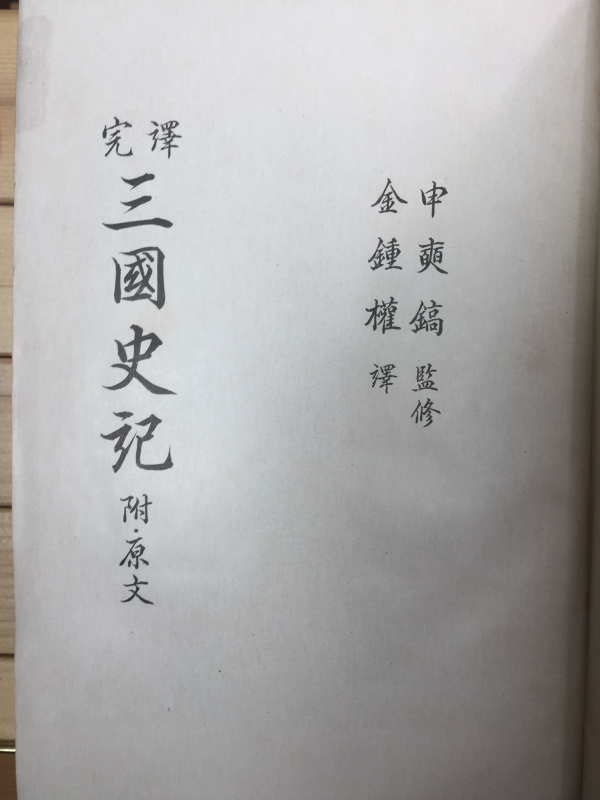 申奭鎬 監修
金鍾權 譯
完譯
三國史記 附·原文